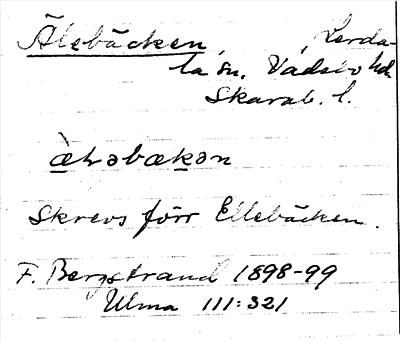 Älebäcken, , Lerda-
la sn. Vadsbo hd.
Skarab. l.
æləbækən
Skrevs förr Ellebäcken.
F. Bergstrand 1898-99
Ulma 111:321